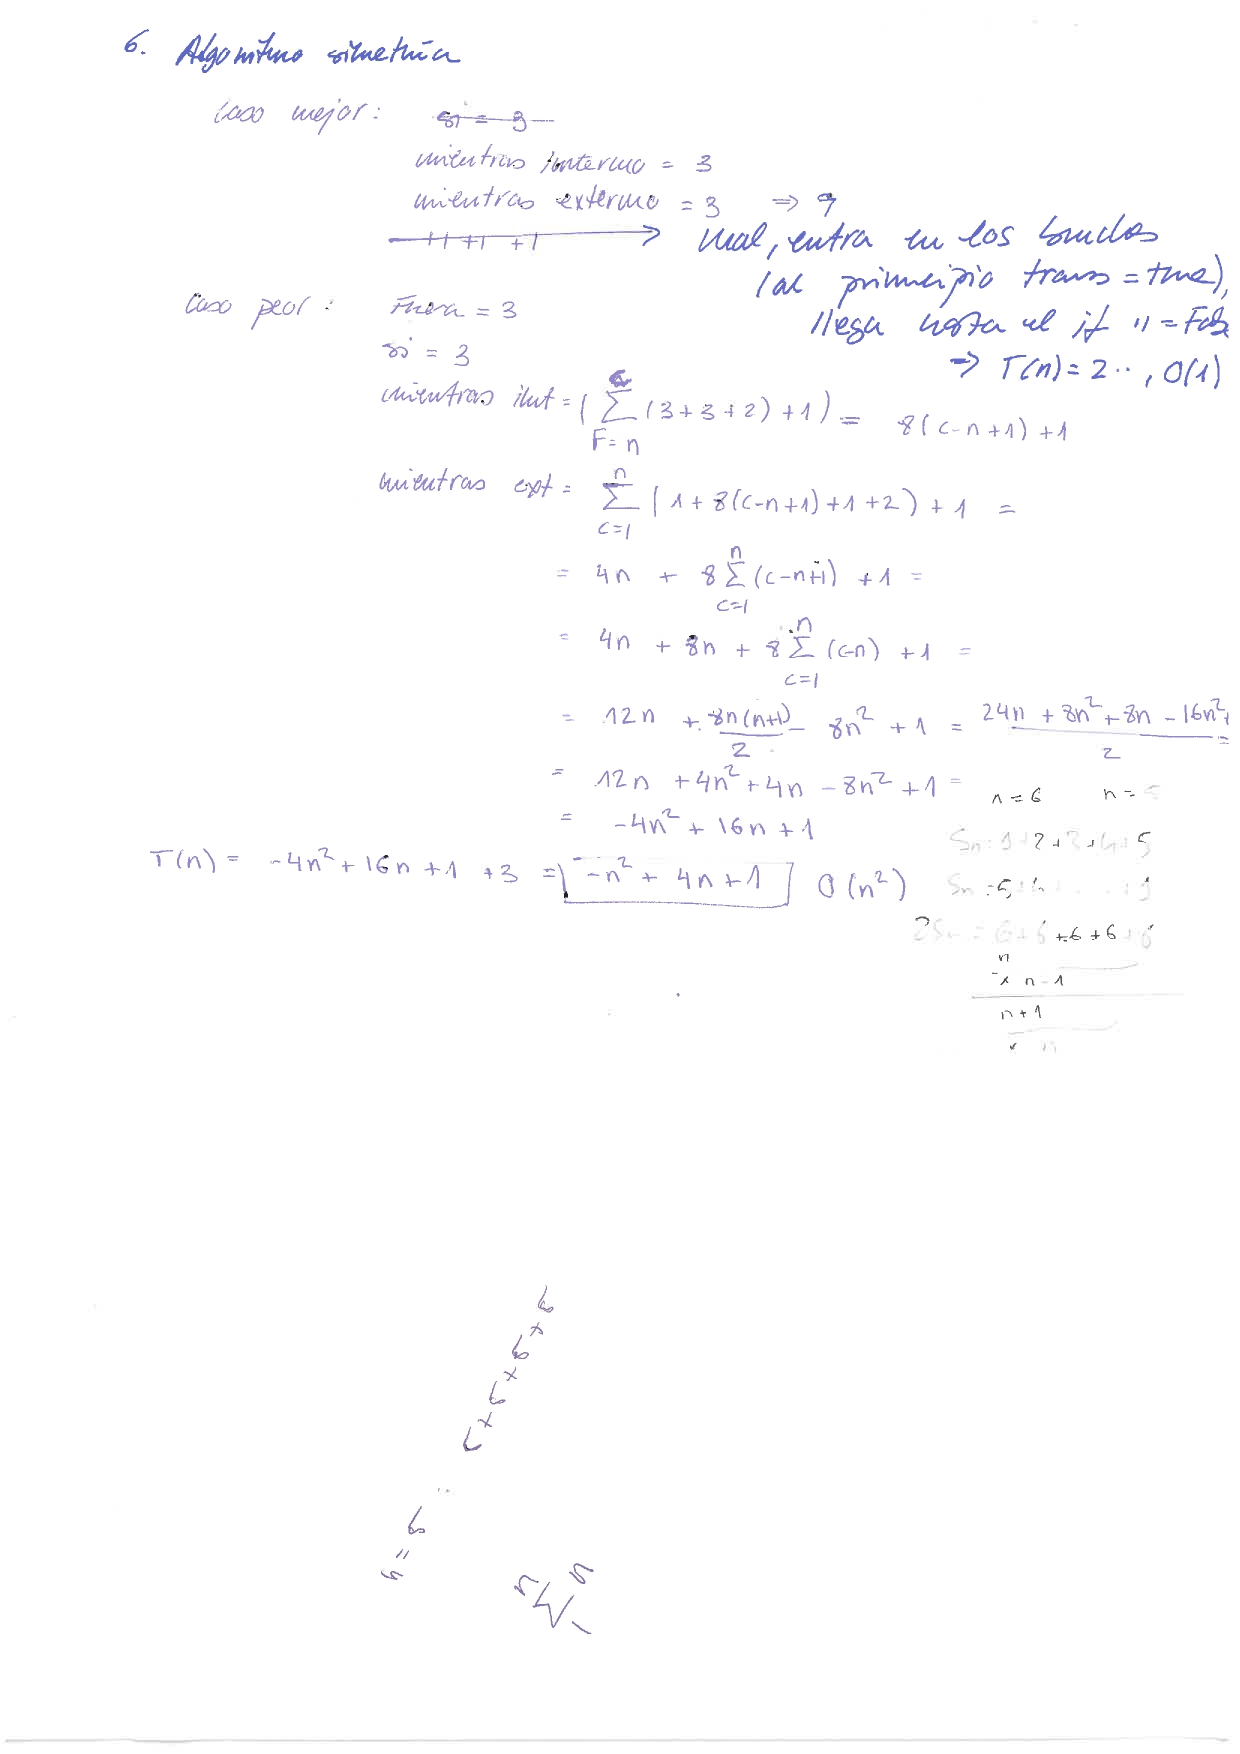 6. Algoritmo simetría
Caso mejor: si = 3
mientras interno = 3
mientras externo = 3 => 9
+1 +1 +1
mal, entra en los bucles
(al principio trans = true),
llega hasta el if " = False
=> T(n) = 2.., O(1)
Caso peor: Fuera = 3
si = 3
mientras int = ( ∑_{F=n}^{c} (3+3+2) + 1 ) = 8(c-n+1) + 1
mientras ext = ∑_{c=1}^{n} (1 + 8(c-n+1) + 1 + 2) + 1 =
= 4n + 8 ∑_{c=1}^{n} (c-n+1) + 1 =
= 4n + 8n + 8 ∑_{c=1}^{n} (c-n) + 1 =
= 12n + 8n(n+1)/2 - 8n² + 1 = (24n + 8n² + 8n - 16n² + )/2 =
= 12n + 4n² + 4n - 8n² + 1 =
= -4n² + 16n + 1
T(n) = -4n² + 16n + 1 + 3 = -n² + 4n + 1 O(n²)
n = 6 n =
Sn: 1+2+3+4+5
Sn = 5+
2Sn = 6+6+6+6+6
n
x n-1
n+1
x n
6+6+6+6
n = 6
∑